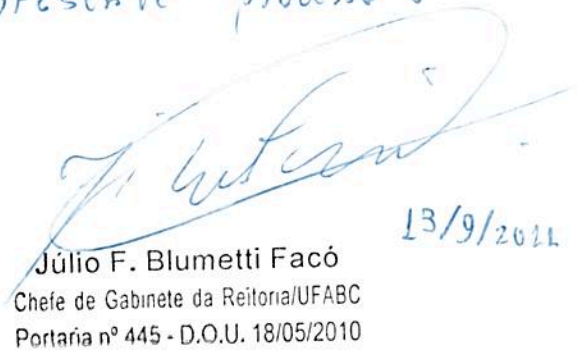 presente processo
13/9/2011
Júlio F. Blumetti Facó
Chefe de Gabinete da Reitoria/UFABC
Portaria nº 445 - D.O.U. 18/05/2010